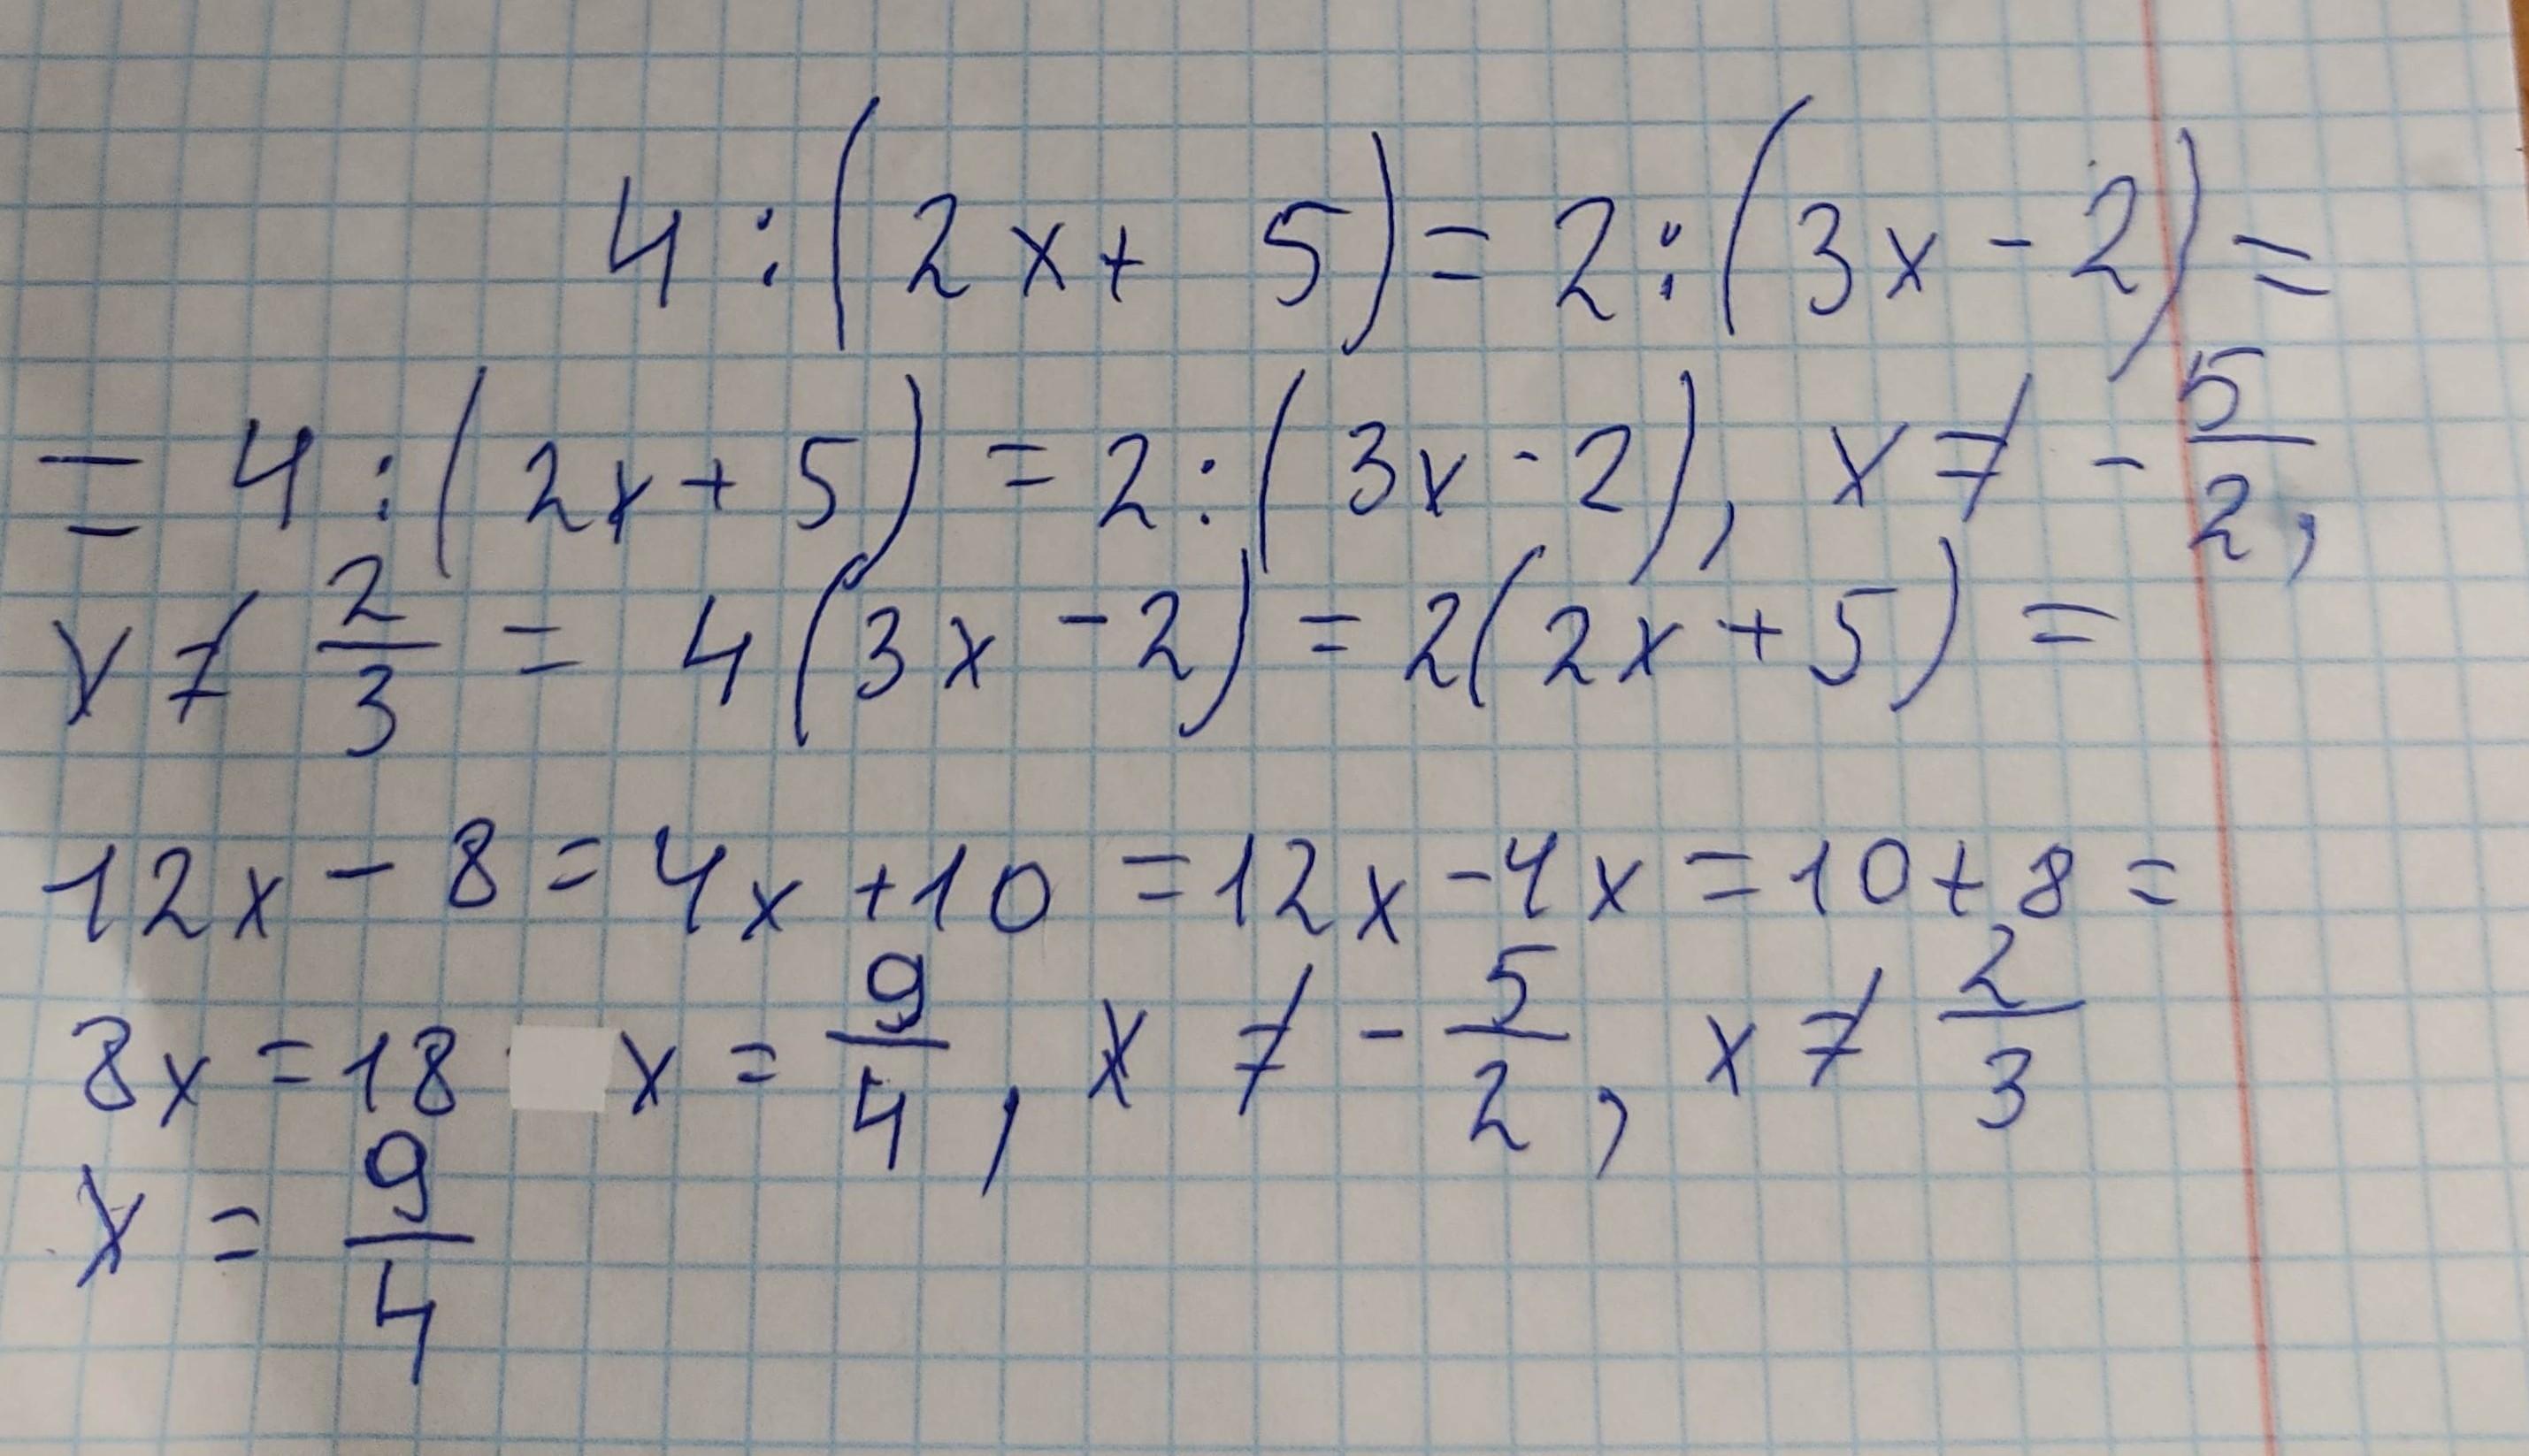 4 : (2x + 5) = 2 : (3x - 2) =
= 4 : (2x + 5) = 2 : (3x - 2), x ≠ - 5/2,
x ≠ 2/3 = 4(3x - 2) = 2(2x + 5) =
12x - 8 = 4x + 10 = 12x - 4x = 10 + 8 =
8x = 18 x = 9/4, x ≠ - 5/2, x ≠ 2/3
x = 9/4